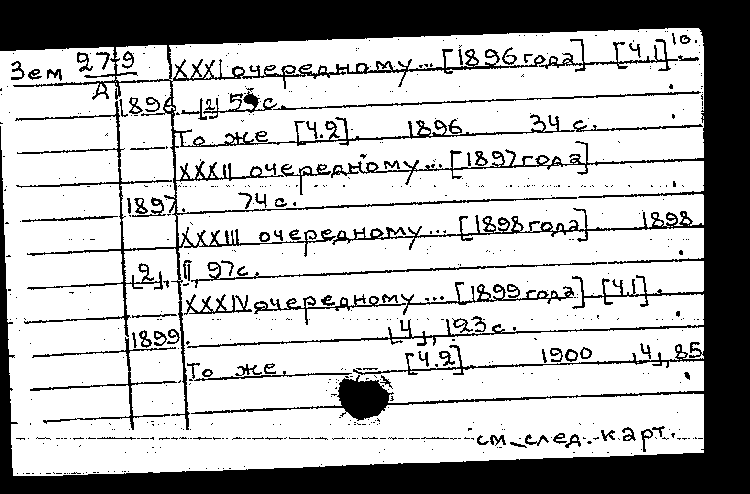 Зем 27-9 XXXI очередному... [1896 года] [ч.1] 10.
А
1896. [2] 59 с.
То же [ч.2]. 1896. 34 с.
XXXII очередному... [1897 года]
1897. 74 с.
XXXIII очередному... [1898 года] 1898.
[2], II, 97 с.
XXXIV очередному... [1899 года] [ч.1].
1899. [4], 123 с.
То же. [ч.2] 1900 [4], 85
см. след. карт.